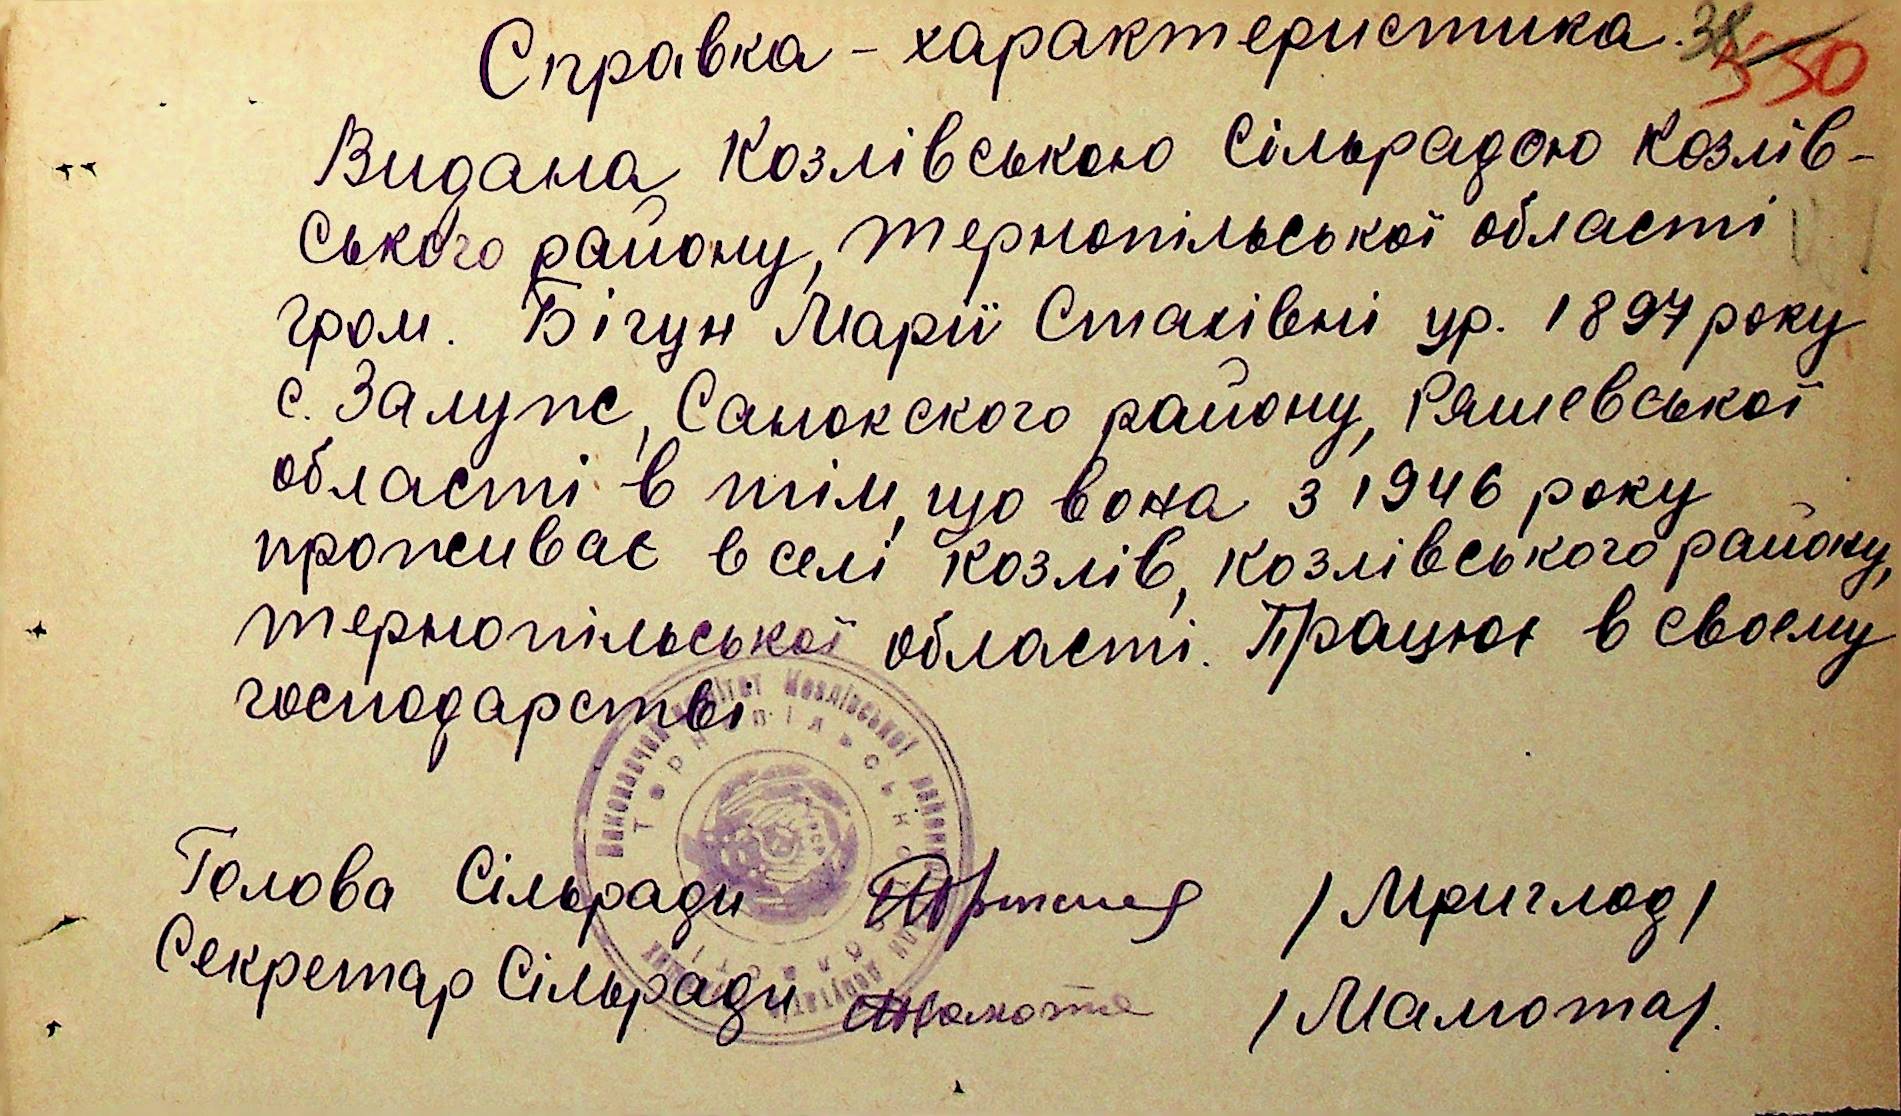 Справка - характеристика.
550
Видана Козлівською Сільрадою Козлів-
ського району, Тернопільської області
гром. Бігун Марії Стахівні ур. 1897 року
с. Залужс, Санокского району, Ряшевської
області в тім, що вона з 1946 року
проживає в селі Козлів, Козлівського району,
Тернопільської області. Працює в своєму
господарстві
Виконавчий комітет Козлівської
Тернопільської області
Голова Сільради /Мриглод/
Секретар Сільради /Мамота/.